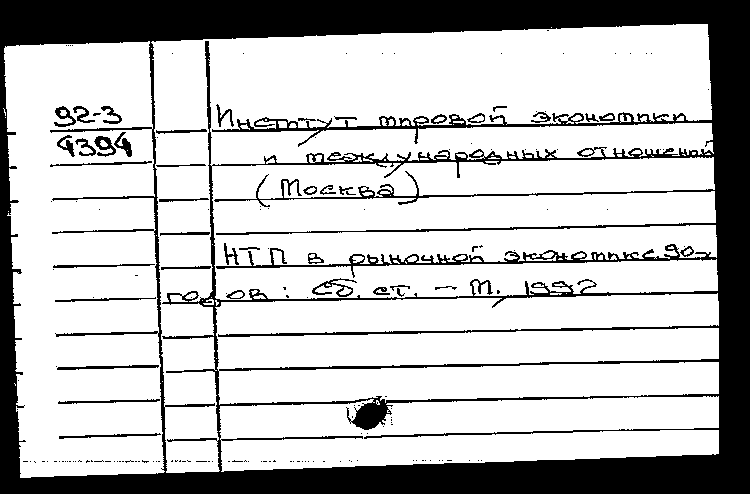 92-3
4394
Институт мировой экономики
и международных отношений
(Москва)
НТП в рыночной экономике 90-х
годов : Сб. ст. – М., 1992